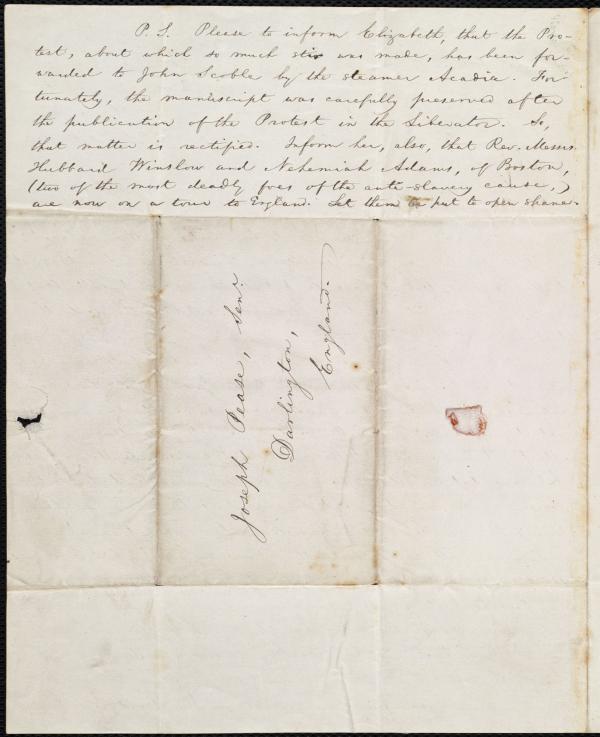 P. S. Please to inform Elizabeth, that the Pro-
test, about which so much stir was made, has been for-
warded to John Scoble by the steamer Acadia. For
tunately, the manuscript was carefully preserved after
the publication of the Protest in the Liberator. So,
that matter is rectified. Inform her, also, that Rev. Messrs
Hubbard Winslow and Nehemiah Adams, of Boston,
(two of the most deadly foes of the anti-slavery cause,)
are now on a tour to England. Let them be put to open shame.
Joseph Pease, Senr.
Darlington,
England.